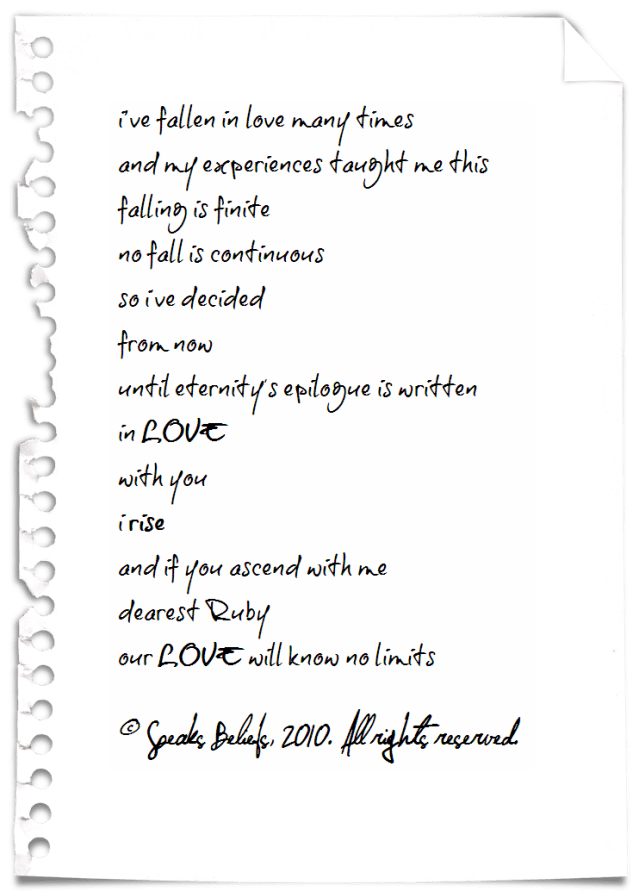 i've fallen in love many times
and my experiences taught me this
falling is finite
no fall is continuous
so i've decided
from now
until eternity's epilogue is written
in LOVE
with you
i rise
and if you ascend with me
dearest Ruby
our LOVE will know no limits
© Speaks Beliefs, 2010. All rights reserved.